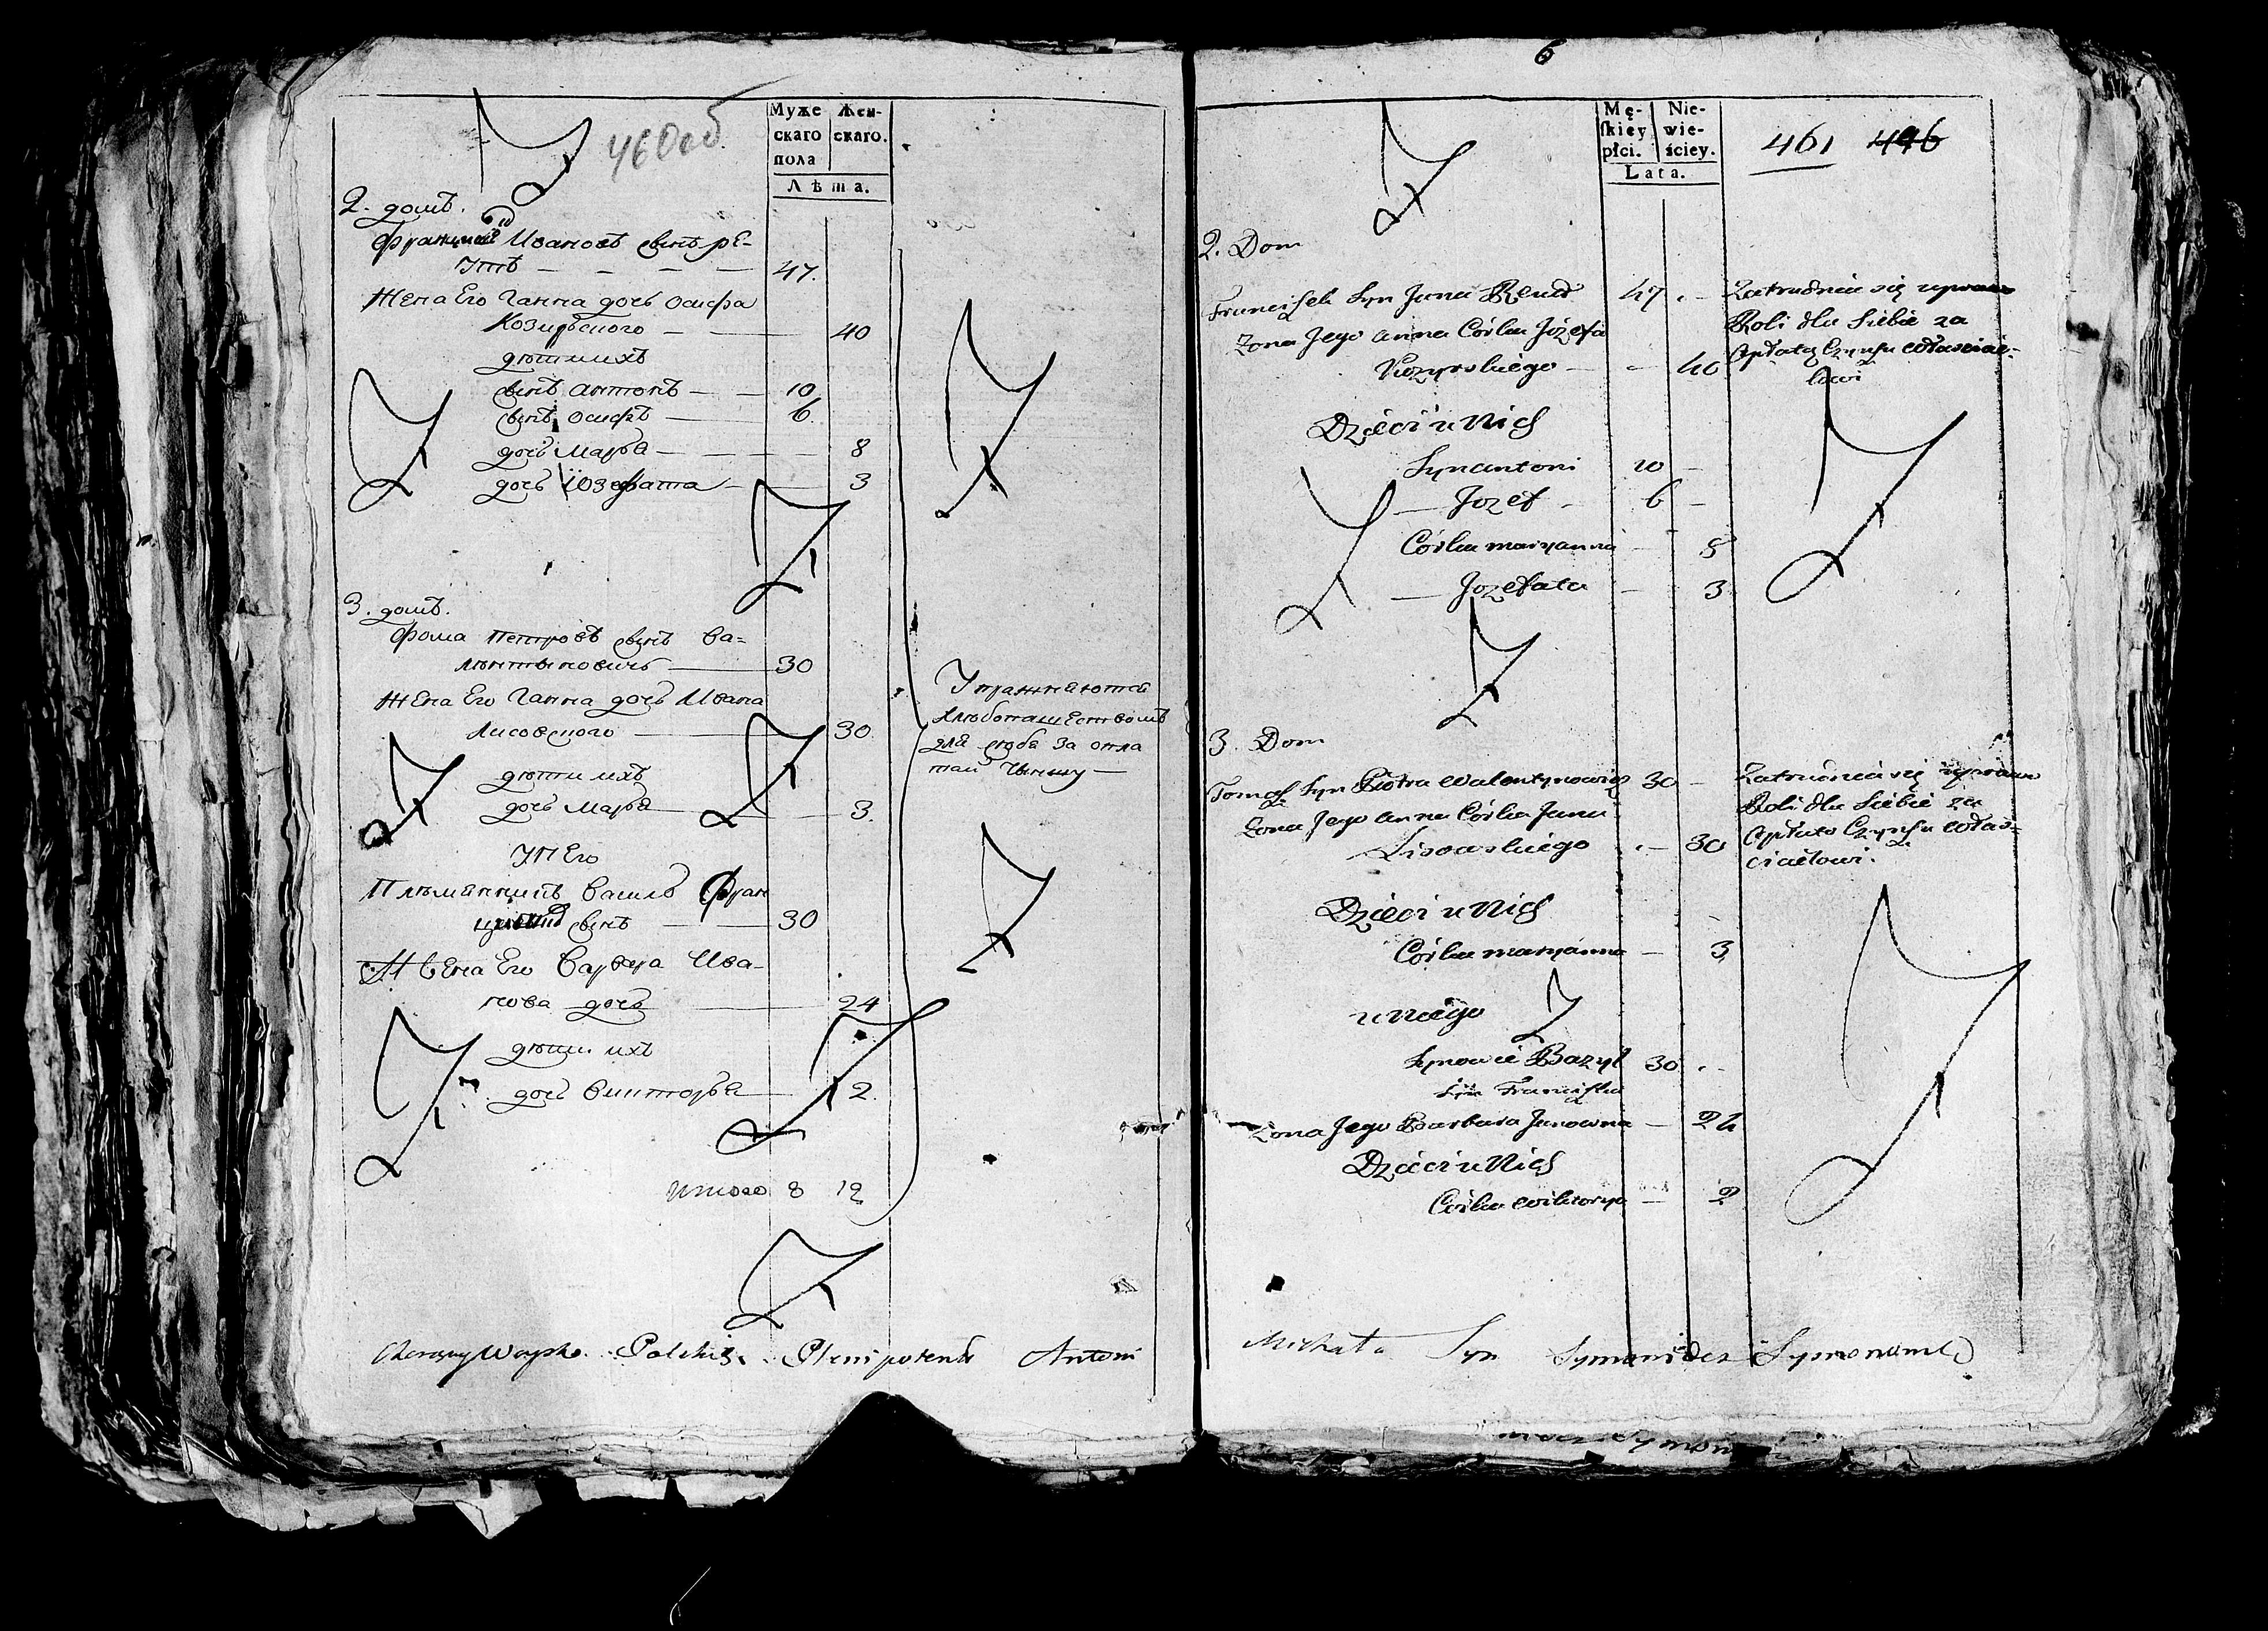 460об
Муже
скаго
пола
Жен-
скаго.
Лѣта.
2. домъ.
Францишекъ Ивановъ сынъ Ре-
утъ 47.
Жена Его Ганна дочь Осифа
Козырского 40
дѣти ихъ
сынъ Антонъ 10
сынъ Осифъ 6.
дочь Марья 8
дочь Юзефата 3
3. домъ.
Фома Петровъ сынъ Ва=
лѣнтыновичъ 30
Жена Его Ганна дочь Ивана
Лисовского 30.
дѣти ихъ
дочь Марья 3.
У Него
Плѣмянникъ Василь Фран
сынъ 30
Жена Его Варвара Ива-
нова дочь 24
дѣти ихъ
дочь Викторья 2.
Итого 8 12
Упражняются
хлѣбопашествомъ
для себя за опла
той чыншу
Plenipotent Antoni
6
Mę-
skiey
płci.
Nie-
wie-
ściey.
Lata.
461 446
2. Dom
Franciszek Syn Jana Reut 47
Żona Jego Anna Córka Józefa
Kozyrskiego 40
Dzieci u Nich
Syn Antoni 10
Jozef 6
Córka Maryanna 8
Jozefata 3
Zatrudnia się uprawą
Roli dla Siebie za
Opłatą Czynszu Właścicie-
lowi
3. Dom
Tomasz Syn Piotra Walentynowicz 30
Żona Jego Anna Córka Jana
Lisowskiego 30
Dzieci u Nich
Córka Maryanna 3
u Niego
Synowiec Bazyl 30
Syn Franciszka
Żona Jego Barbara Janowna 24
Dzieci u Nich
Córka Wiktorya 2
Zatrudnia się uprawą
Roli dla Siebie za
Opłatą Czynszu Właś=
cicielowi.
Michała Syn